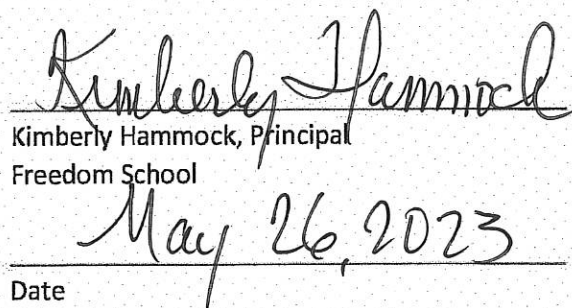 Kimberly Hammock
Kimberly Hammock, Principal
Freedom School
May 26, 2023
Date